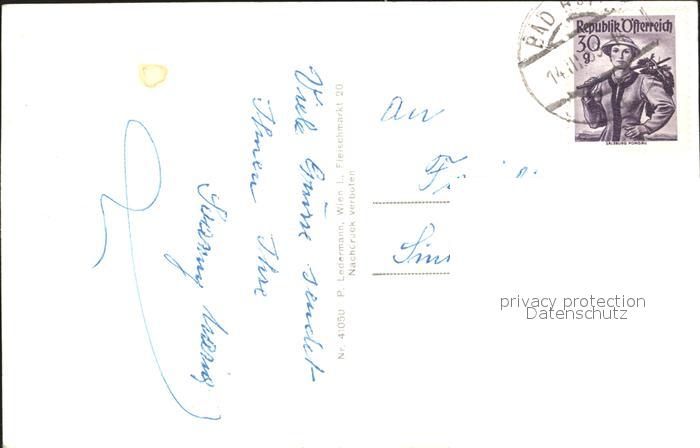 Viele Grüsse sendet
Ihnen Ihre
Nr. 41050 P. Ledermann, Wien I., Fleischmarkt 20
Nachdruck verboten
BAD
14.III.
Republik Österreich
30 g
SALZBURG PONGAU
An
privacy protection
Datenschutz